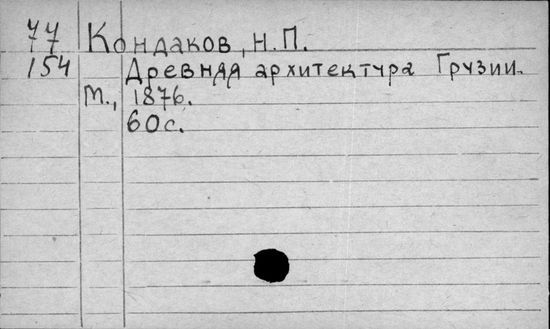 77 Кондаков, Н.П.
154 Древняя архитектура Грузии.
М., 1876.
60 с.